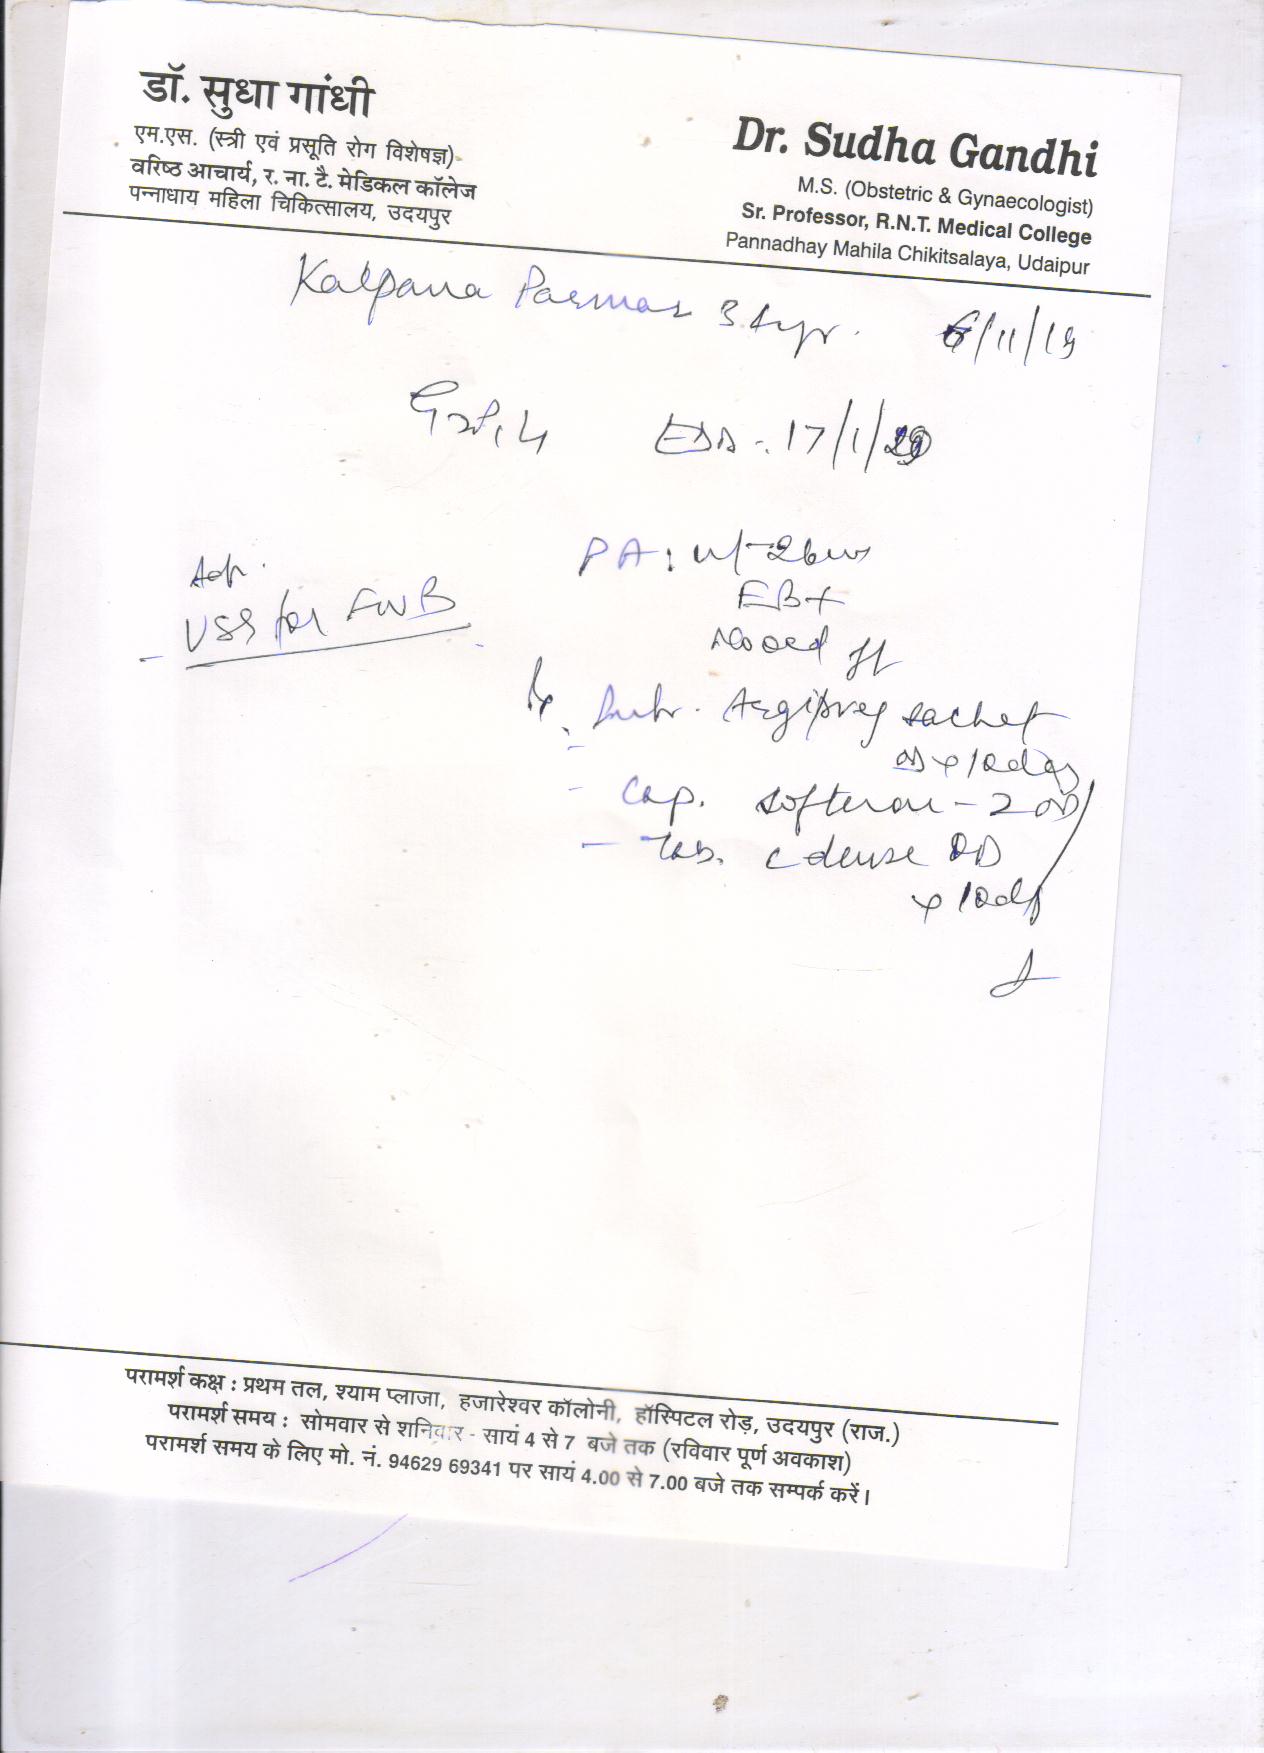 डॉ. सुधा गांधी
एम.एस. (स्त्री एवं प्रसूति रोग विशेषज्ञ)
वरिष्ठ आचार्य, र. ना. टै. मेडिकल कॉलेज
पन्नाधाय महिला चिकित्सालय, उदयपुर
Dr. Sudha Gandhi
M.S. (Obstetric & Gynaecologist)
Sr. Professor, R.N.T. Medical College
Pannadhay Mahila Chikitsalaya, Udaipur
Kalpana Parmar 6/11/19
EDD - 17/1/20
PA:
Adv.
USG for FWB
sachet
OD x 10 days
Cap. Softeron - Z OD
Tab. C dense OD
x 10 days
परामर्श कक्ष : प्रथम तल, श्याम प्लाजा, हजारेश्वर कॉलोनी, हॉस्पिटल रोड़, उदयपुर (राज.)
परामर्श समय : सोमवार से शनिवार - सायं 4 से 7 बजे तक (रविवार पूर्ण अवकाश)
परामर्श समय के लिए मो. नं. 94629 69341 पर सायं 4.00 से 7.00 बजे तक सम्पर्क करें।